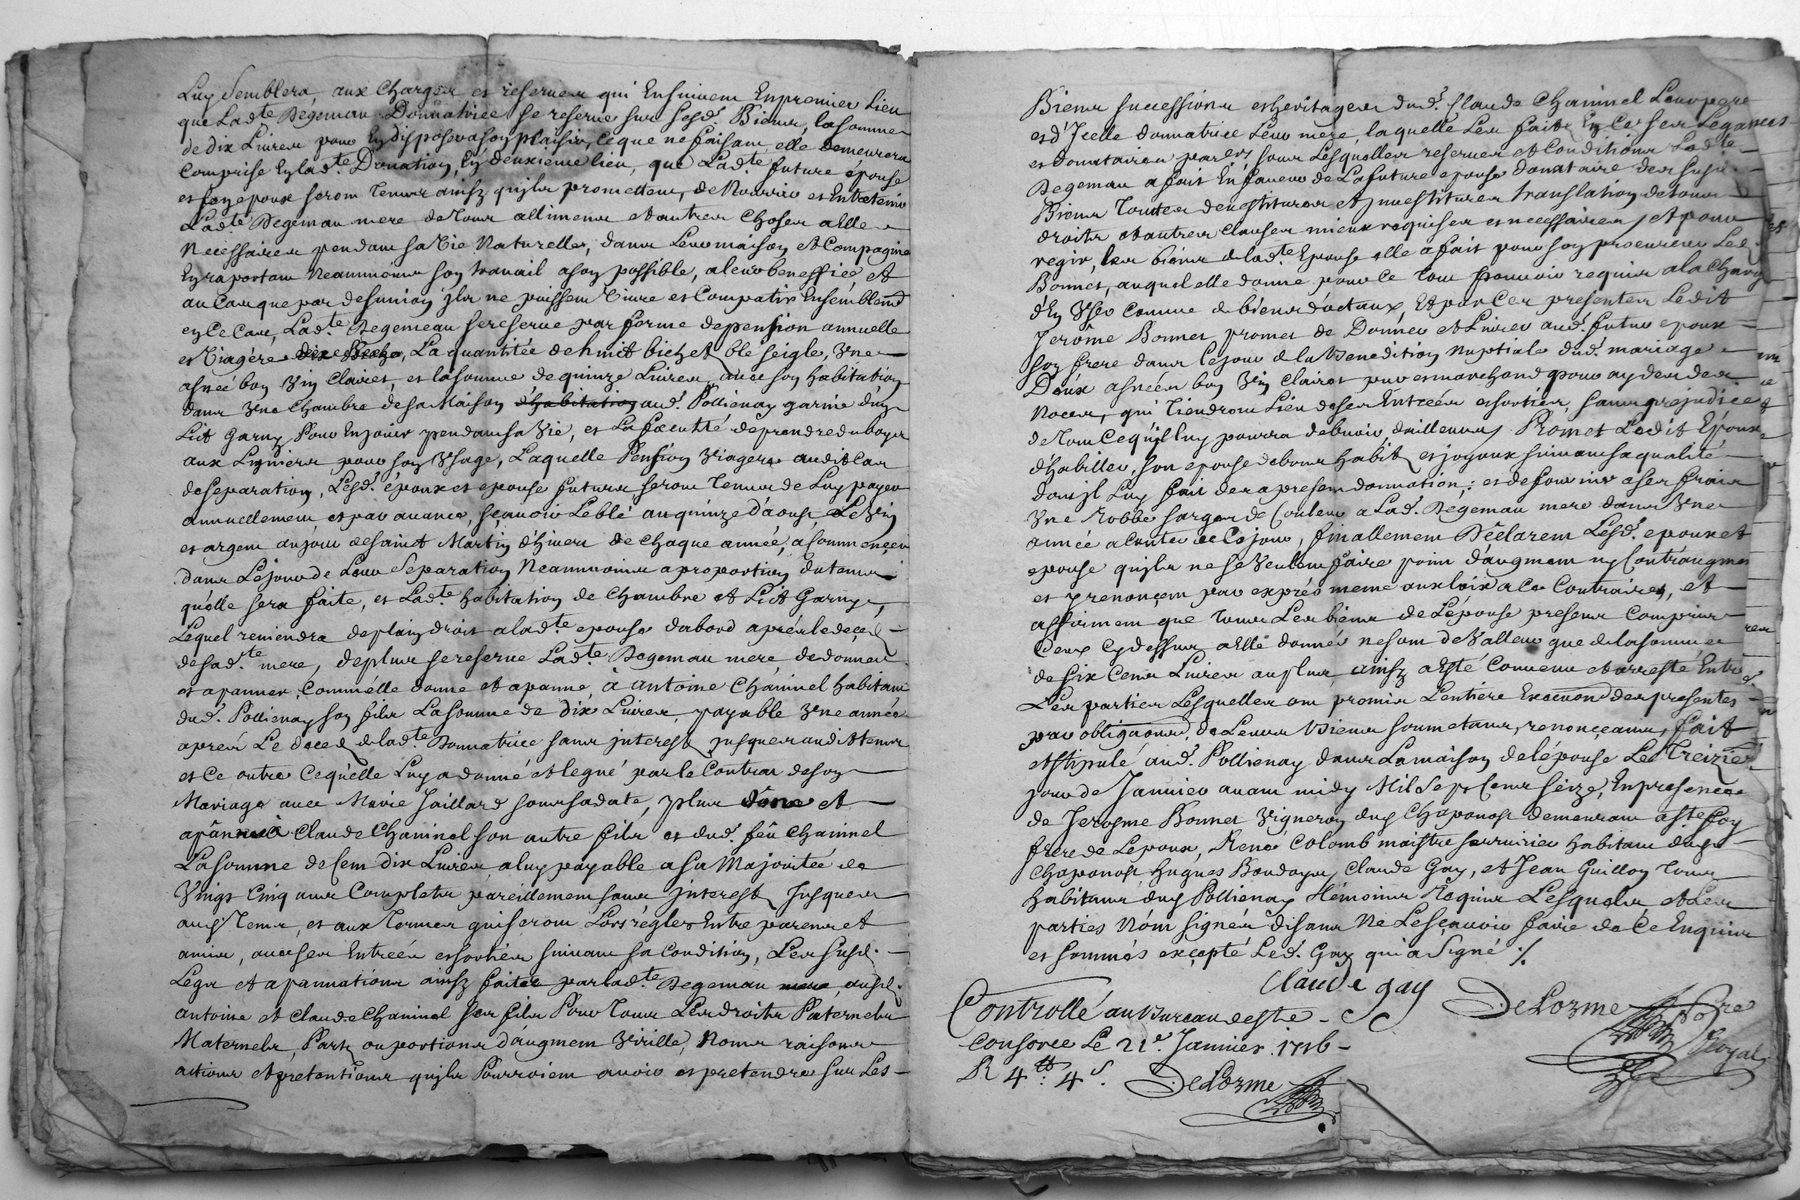 Luy Semblera, aux charges et reserves qui Ensuivent Enpremier Lieu
que Lad.te Degeman Donnatrice se reserve sur sesd. Biens, lasomme
de dix Livres pour En disposer a son plaisir, ce que ne faisant elle demeurera
Comprise En lad.te Donation, En deuxieme lieu, que Lad.te future épouse
et son epoux seront tenus ainsy quils promettent, de Nourrir et Entretenir
Lad.te Degeman mere de tous alliments et autres choses a Elle
Necessaires pendant sa vie Naturelle, dans leur maison et Compagnie
En raportant Neanmoins son travail a son possible, a leur beneffice, et
au Cas que par desunion jls ne puissent vivre et Compatir Ensemblem.t
en Ce Cas, Lad.te Degemeau sereserve par forme depension annuelle
et viagére La quantitée de huict bichet blé seigle, Une
asnée bon Vin Clairet, et lasomme de quinze Livres, avec son habitation
dans Vne Chambre desa Maison d'habitation aud. Pollienay garnie dun
Lict garny Pour En jouir pendant sa Vie, et La faculté de prendre du boys
aux Ligniers pour son Usage, Laquelle Pension Viagere audit Cas
de separation, Lesd. époux et epouse futurs seront tenus de Luy payer
annuellement et par avance, sçavoir Leblé au quinze d'aoust Le Vin
et argent au jour de sainct Martin d'hiver de chaque année, a Commencer
dans Lejour de Leur Separation Neanmoins a proportion du tems
qu'elle sera faite, et Lad.te habitation de chambre et Lict Garny,
Lequel reviendra de plain droit a lad.te epouse d'abord aprés le decez
de sad.te mere, de plus sereserve Lad.te Degeman mere de donner
et apanner, Comme elle donne et apanne, a antoine Chaninel habitant
dud. Pollienay son fils La somme de dix Livres, payable Vne année
aprés Le decez de lad.te Donnatrice sans interest jusques audit tems
et Ce outre Cequ'elle Luy a donné et legué par le Contrat de son
Mariage avec Marie Jaillard sous sa date, plus dône et
apânne a Claude Chaninel son autre fils et dud. feû Chaninel
La somme de Cent dix Livres a luy payable a sa Majoritée de
Vingt Cinq ans Complets pareillement sans interest Jusques
aud. tems, et aux termes qui seront Lors réglés Entre parens et
amis, avec ses Entrées et sorties suivant sa Condition, Les susd.
Legs et apannations ainsy faites par lad.te Degeman mere, ausd.
antoine et Claude Chaninel ses fils Pour tous Les droits Paternels
Maternels, Parts ou portions d'augment Virille, Noms raisons
actions et pretentions quils Pourroient avoir et pretendre sur Les
Biens successions et heritages dud. Claude Chaninel Leur pere
et d'Icelle donnatrice Leur mere, laquelle Les fait En Ce ses Legataires
et donnataires parels, sous Lesquelles reserves et Conditions Lad.te
Degeman a fait En faveur de La future epouse donataire des susd.
Biens toutes devestitures et jnvestitures translation de tous
droits et autres clauses mieux requises et necessaires, et pour
regir les biens de lad.te Epouse elle a fait pour son procureur Led.
Bonnet, auquel elle donne pour Ce tout pouvoir requis a la charge
d'En User Comme de biens dotaux, Et par Ces presentes Ledit
Jerôme Bonnet promet de Donner et Livrer aud. futur epoux
son frere dans lejour de la Benediction Nuptiale dud. mariage
Deux asnées bon Vin Clairet pur et marchand pour ayder des
Noces, qui tiendront Lieu de ses Entrées et sorties, sans prejudice
de tout Cequ'jl luy pourra debvoir d'ailleurs, Promet Ledit Epoux
d'habiller son epouse de bons habits et joyaux suivant sa qualité
dont jl Luy fait des a present donnation; et de fournir a ses frais
Vne Robbe sarge de Couleur a Lad. Degeman mere dans Vne
année a Conter de Cejour, finallement Déclarent Lesd. epoux et
epouse qujls ne se Veulent faire point d'augment ny Contraugment
et y renonçent par exprés meme aux loix a Ce Contraires, et
affirment que tous Les biens de L'épouse presens Compris
Ceux Cydessus a Elle donnés ne sont de Valleur que de lasomme
de six Cens Livres au plus ainsy a esté Convenu et arresté Entre
Les parties Lesquelles ont promis L'entiere Execution des presentes
par obligaôns de Leurs Biens soumetans, renonçeans, fait
et stipulé aud. Pollienay dans La maison de l'épouse Le Treizie.
jour de Janvier avant midy Mil Sept Cens Seize, En presence
de Jerosme Bonnet Vigneron de Chaponost demeurant a S.te foy
frere de L'epoux, René Colomb maistre serrurier habitant dud.
Chaponost, Hugues Boudoyu, Claude Gay, et Jean Guillon tous
habitans dud. Pollienay témoins Requis Lesquels et Les
parties N'ont signés disans Ne Lescavoir faire de Ce Enquis
et sommés excepté Led. Gay qui a Signé ./.
Claude gay
DeLorme No.re
Royal
Controllé au Bureau de S.te
Consorce Le 21.e Janvier 1716
R 4.tt 4.s
DeLorme